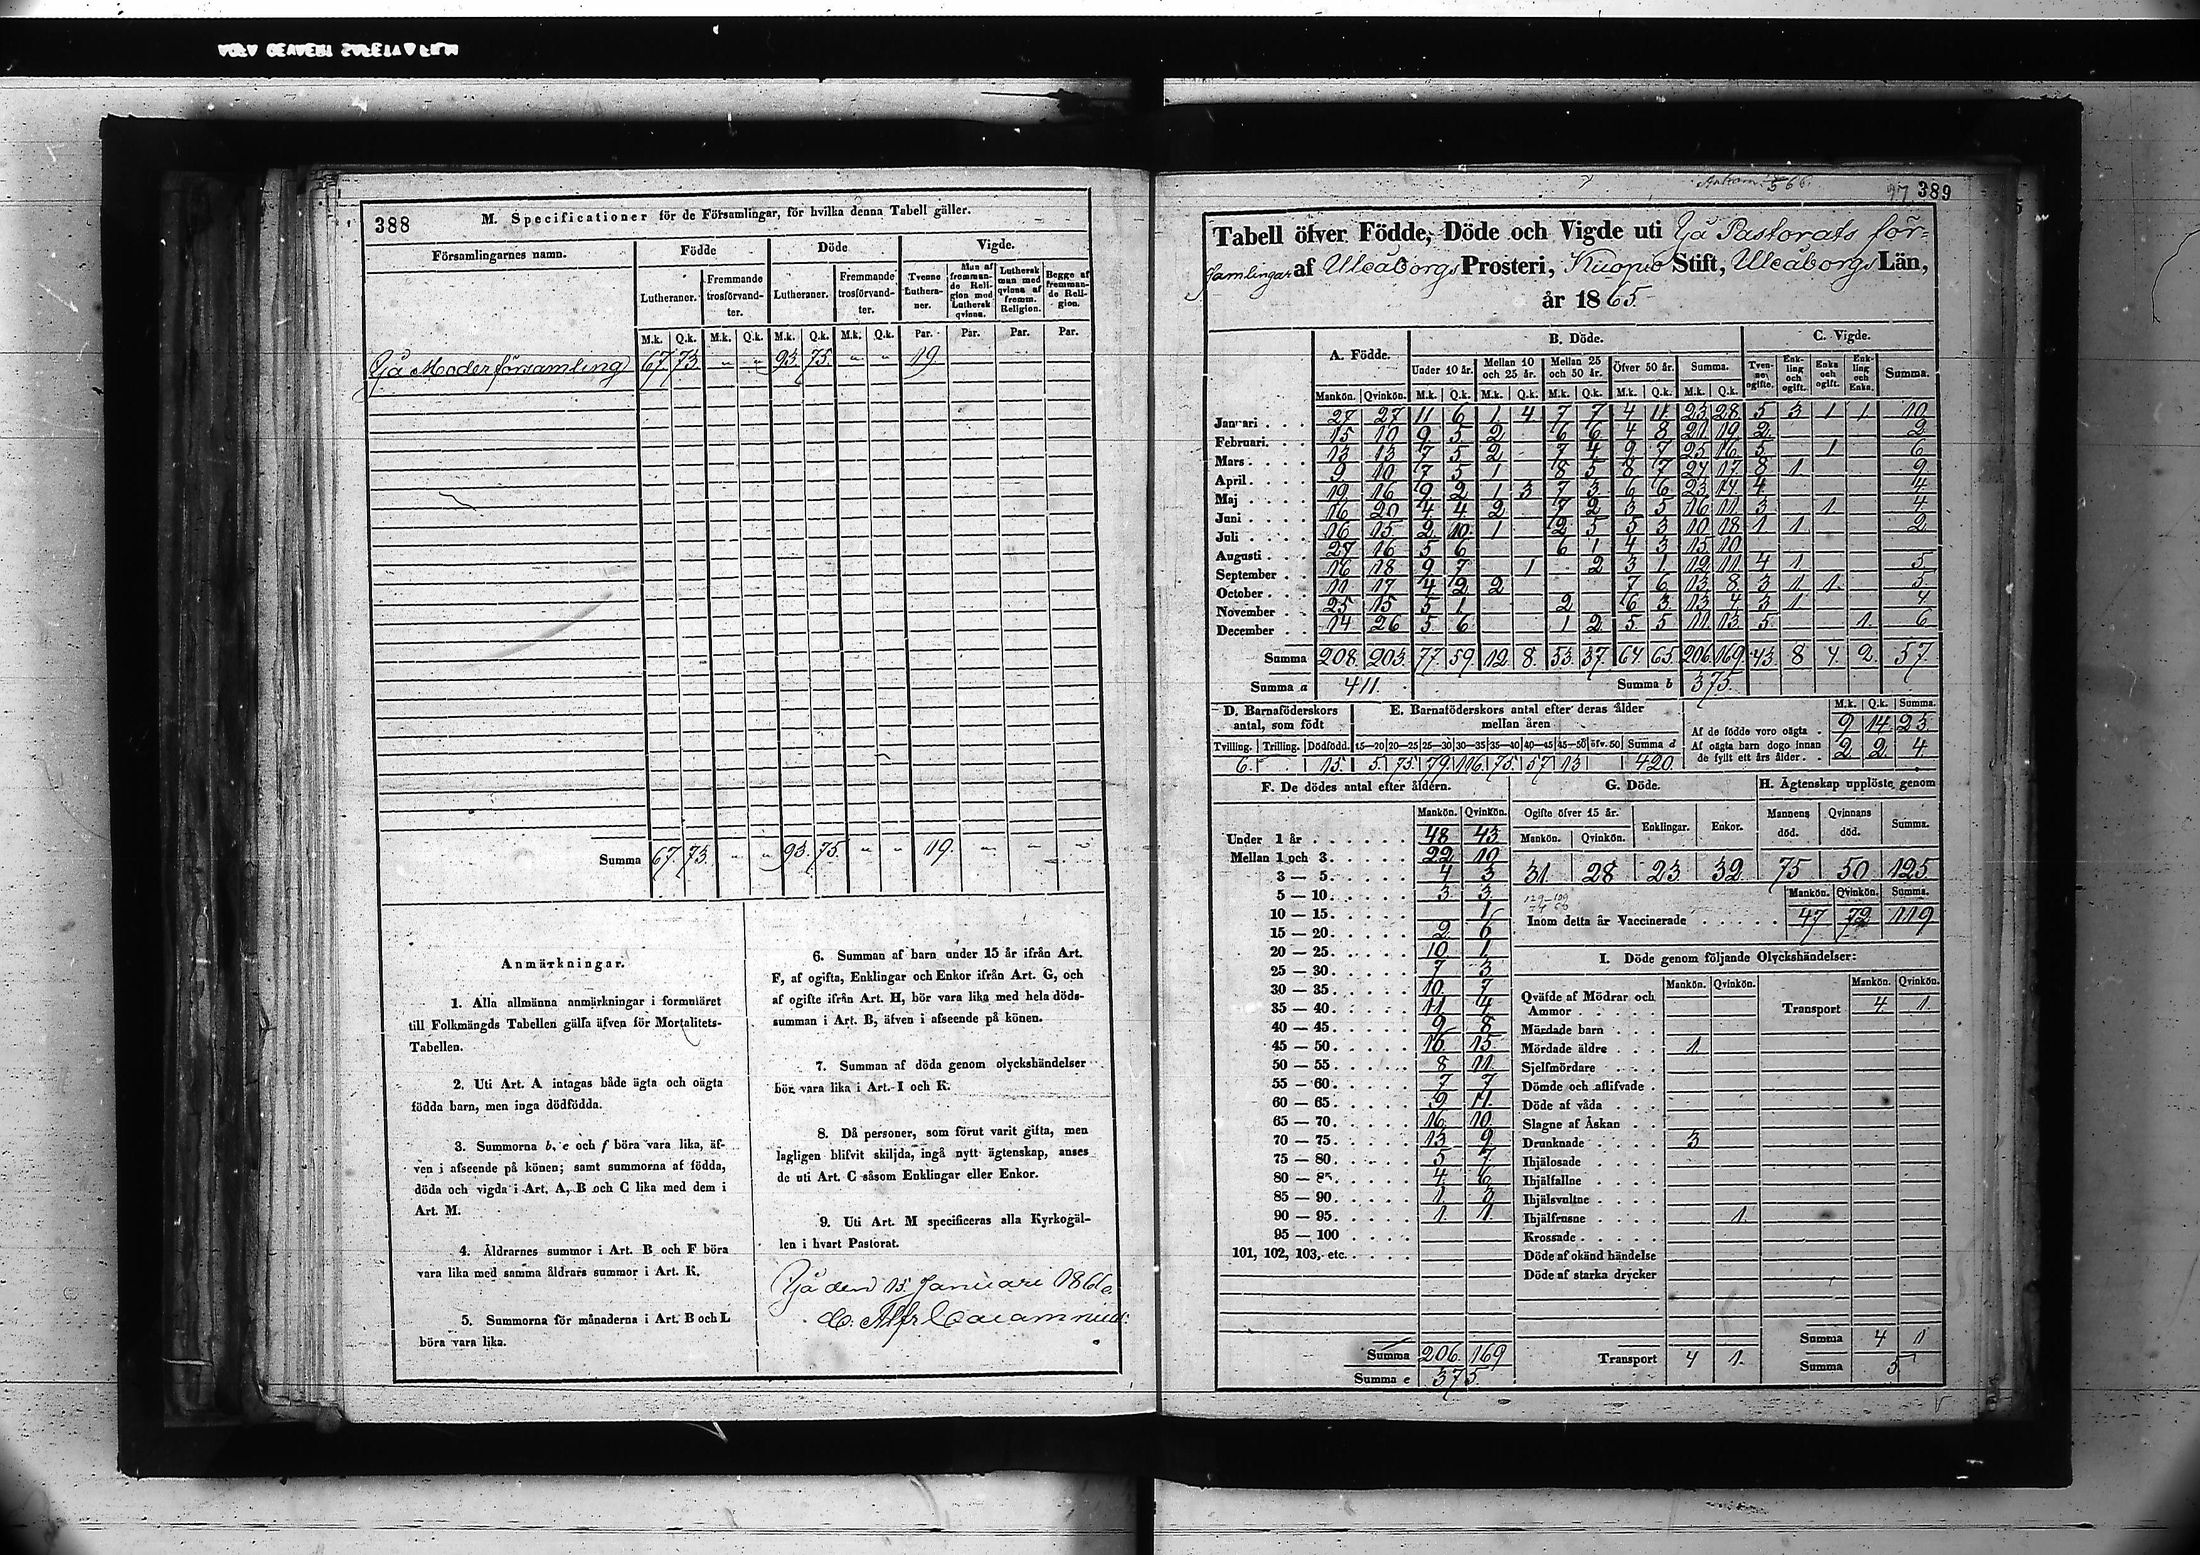 388
M. Specificationer för de Församlingar, för hvilka denna Tabell gäller.
Församlingarnes namn. Födde Döde Vigde.
Lutheraner. Fremmande trosförvandter. Lutheraner. Fremmande trosförvandter. Tvenne Lutheraner. Man af fremmande Religion med Luthersk qvinna. Luthersk man med qvinna af fremm. Religion. Begge af fremmande Religion.
M.k. Q.k. M.k. Q.k. M.k. Q.k. M.k. Q.k. Par. Par. Par. Par.
Ijå Moderförsamling 67. 73. " " 93. 75. " " 19.
Summa 67. 73. " " 93. 75. " " 19. " " "
Anmärkningar.
1. Alla allmänna anmärkningar i formuläret
till Folkmängds Tabellen gälla äfven för Mortalitets-
Tabellen.
2. Uti Art. A intagas både ägta och oägta
födda barn, men inga dödfödda.
3. Summorna b, e och f böra vara lika, äf-
ven i afseende på könen; samt summorna af födda,
döda och vigda i Art. A, B och C lika med dem i
Art. M.
4. Åldrarnes summor i Art. B och F böra
vara lika med samma åldrars summor i Art. K.
5. Summorna för månaderna i Art. B och L
böra vara lika.
6. Summan af barn under 15 år ifrån Art.
F, af ogifta, Enklingar och Enkor ifrån Art. G, och
af ogifte ifrån Art. H, bör vara lika med hela döds-
summan i Art. B, äfven i afseende på könen.
7. Summan af döda genom olyckshändelser
bör vara lika i Art. I och K.
8. Då personer, som förut varit gifta, men
lagligen blifvit skiljda, ingå nytt ägtenskap, anses
de uti Art. C såsom Enklingar eller Enkor.
9. Uti Art. M specificeras alla Kyrkogäl-
len i hvart Pastorat.
Ijå den 15 Januari 1866.
389
Tabell öfver Födde, Döde och Vigde uti Ijå Pastorats för-
samlingar af Uleåborgs Prosteri, Kuopio Stift, Uleåborgs Län,
år 1865.
A. Födde. B. Döde. C. Vigde.
Under 10 år. Mellan 10 och 25 år. Mellan 25 och 50 år. Öfver 50 år. Summa. Tvenne ogifte. Enkling och ogift. Enka och ogift. Enkling och Enka. Summa.
Mankön. Qvinkön. M.k. Q.k. M.k. Q.k. M.k. Q.k. M.k. Q.k. M.k. Q.k.
Januari 27 27 11 6 1 4 7 7 4 11 23 28 5 3 1 1 10
Februari 15 10 9 5 2 6 6 4 8 21 19 2 2
Mars 13 13 7 5 2 7 4 9 7 25 16 5 1 6
April 9 10 7 5 1 8 5 8 7 24 17 8 1 9
Maj 19 16 9 2 1 3 7 3 6 6 23 14 4 4
Juni 16 20 4 4 2 7 2 3 5 16 11 3 1 4
Juli 16 15 2 10 1 2 5 5 3 10 18 1 1 2
Augusti 27 16 5 6 6 1 4 3 15 10
September 16 18 9 7 1 2 3 1 12 11 4 1 5
October 11 17 4 2 2 7 6 13 8 3 1 1 5
November 25 15 5 1 2 6 3 13 4 3 1 4
December 14 26 5 6 1 2 5 5 11 13 5 1 6
Summa 208. 203. 77. 59. 12. 8. 53. 37. 64. 65. 206. 169. 43. 8 4. 2. 57.
Summa a 411. Summa b 375.
D. Barnaföderskors antal, som födt E. Barnaföderskors antal efter deras ålder mellan åren
Tvilling. Trilling. Dödfödd. 15—20 20—25 25—30 30—35 35—40 40—45 45—50 öfv. 50 Summa d
6. 15. 5. 75. 79. 116. 75. 57 13 420.
M.k. Q.k. Summa.
Af de födde voro oägta 9 14 23
Af oägta barn dogo innan de fyllt ett års ålder 2 2 4
F. De dödes antal efter åldern.
Mankön. Qvinkön.
Under 1 år 48 43
Mellan 1 och 3 22 10
3 — 5 4 3
5 — 10 3 3
10 — 15 1
15 — 20 2 6
20 — 25 10 1
25 — 30 7 3
30 — 35 10 7
35 — 40 11 4
40 — 45 9 8
45 — 50 16 15
50 — 55 8 11
55 — 60 7 7
60 — 65 9 11
65 — 70 16 10
70 — 75 13 9
75 — 80 5 7
80 — 85 4 6
85 — 90 1 3
90 — 95 1 1
95 — 100
101, 102, 103, etc.
Summa 206. 169
Summa e 375.
G. Döde.
Ogifte öfver 15 år. Enklingar. Enkor.
Mankön. Qvinkön.
31 28 23 32
H. Ägtenskap upplöste genom
Mannens död. Qvinnans död. Summa.
75 50 125
Mankön. Qvinkön. Summa.
Inom detta år Vaccinerade 47 72 119
I. Döde genom följande Olyckshändelser:
Mankön. Qvinkön. Mankön. Qvinkön.
Qväfde af Mödrar och Ammor Transport 4. 1.
Mördade barn
Mördade äldre 1.
Sjelfmördare
Dömde och aflifvade
Döde af våda
Slagne af Åskan
Drunknade 3
Ihjälosade
Ihjälfallne
Ihjälsvultne
Ihjälfrusne 1.
Krossade
Döde af okänd händelse
Döde af starka drycker
Summa 4 1
Transport 4 1. Summa 5